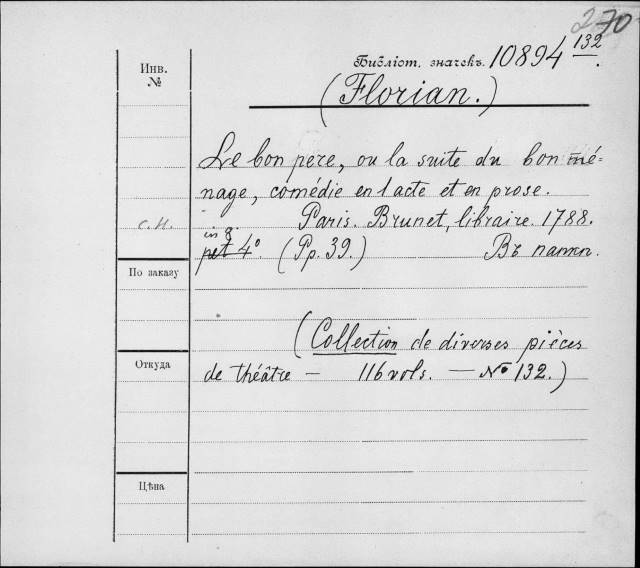 270
Библіот. значекъ. 10894 132.
Инв.
№
(Florian.)
Le bon pere, ou la suite du bon mé-
nage, comédie en 1 acte et en prose.
С.Н.
Paris. Brunet, libraire. 1788.
in 8.
pet 4º. (Pp. 39.) Въ папкп.
По заказу
(Collection de diverses pièces
Откуда
de théâtre — 116 vols. — № 132.)
Цѣна